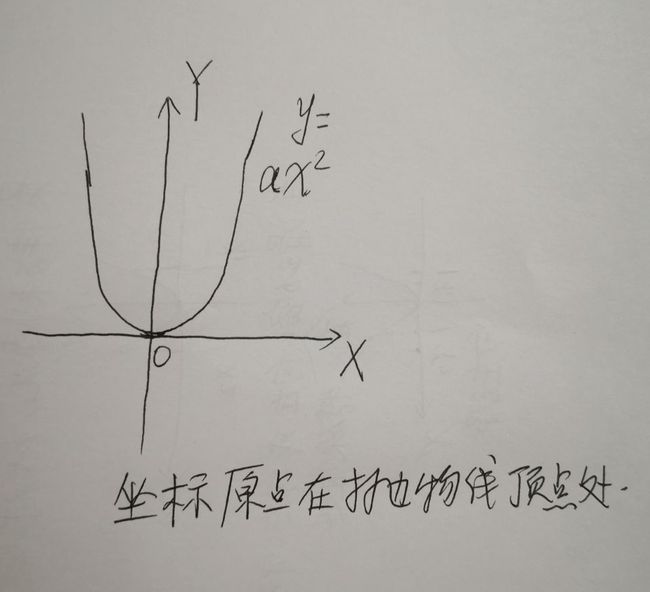 Y
y=
ax²
O
X
坐标原点在抛物线顶点处.